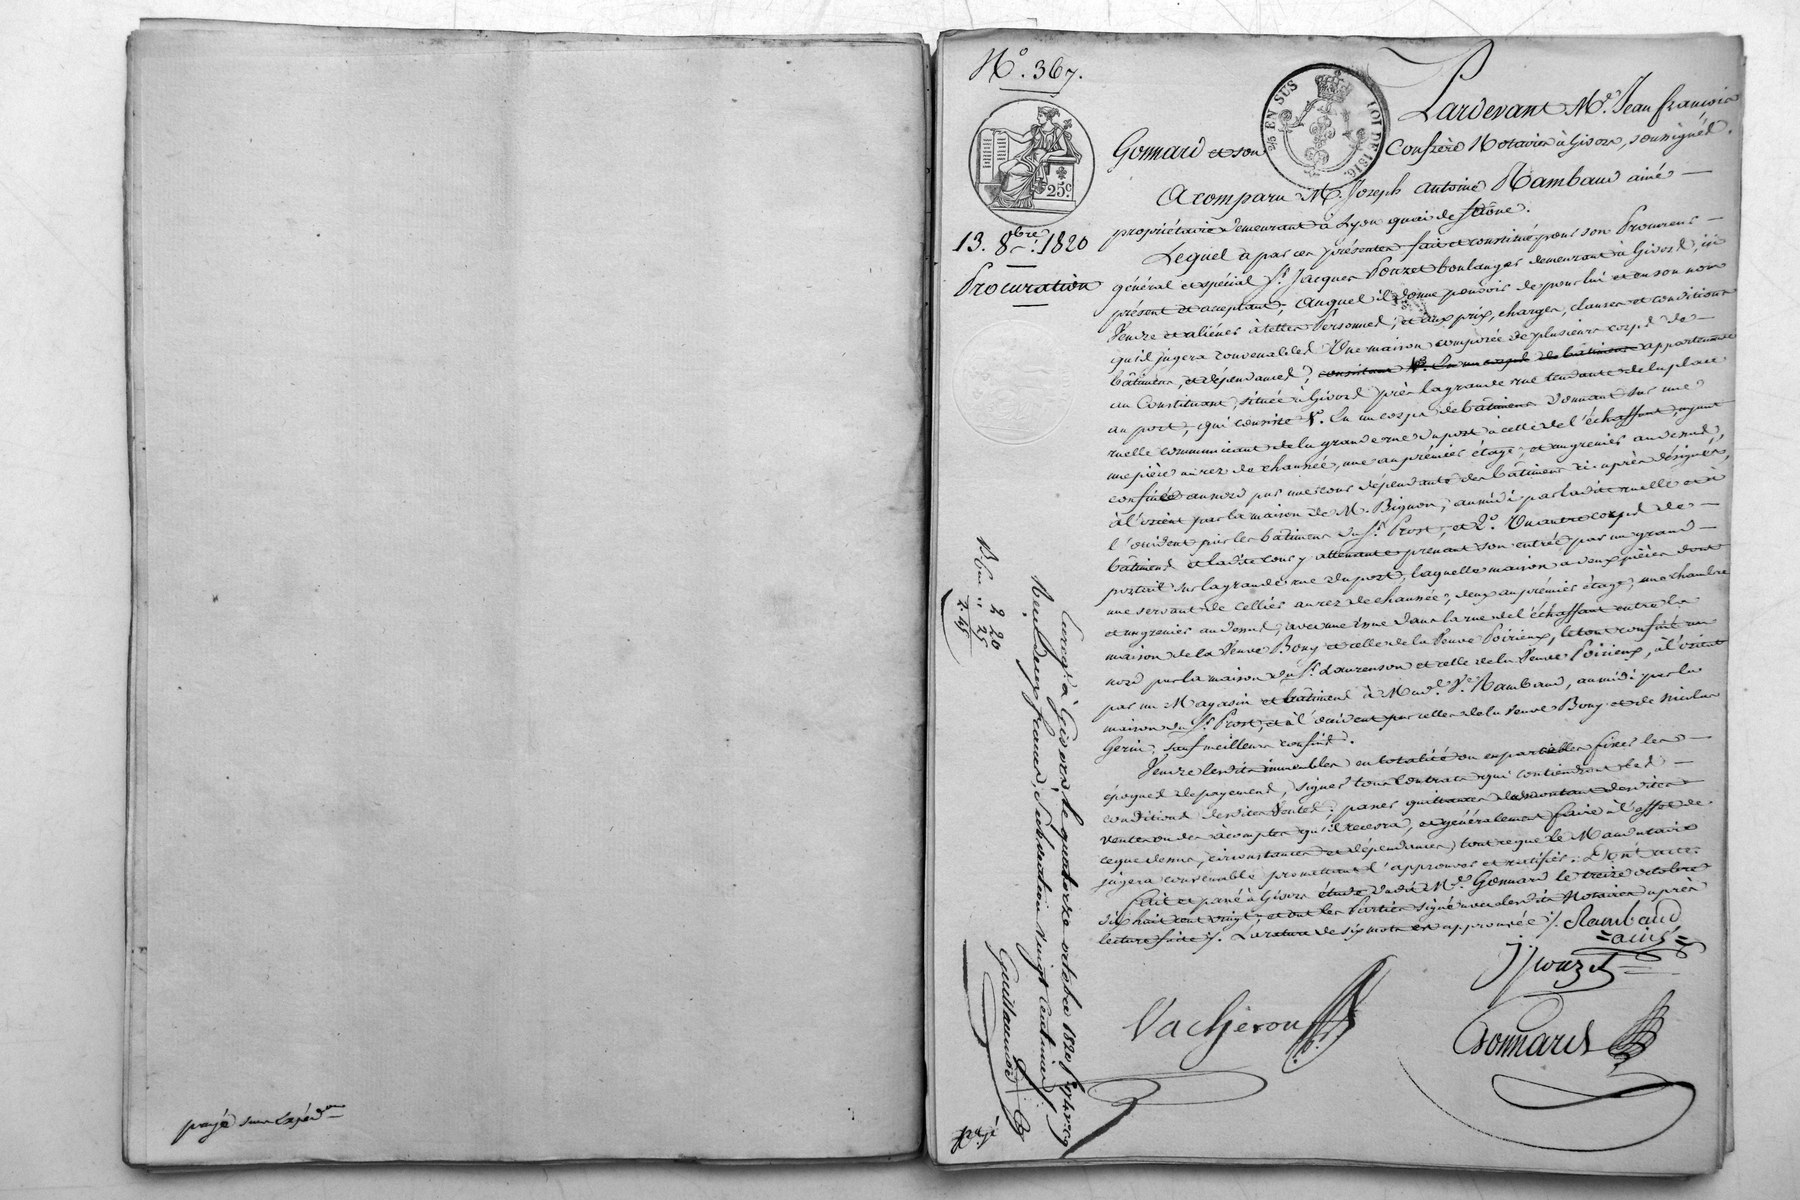 payé sur expédon
N.° 367.
25c.
2/5 EN SUS
LOI DE 1816.
13. 8bre. 1820
Procuration
Pardevant Me. Jean françois
Gonnard et son Confrère Notaires à Givors, soussignés.
A comparu M. Joseph Antoine Rambaud ainé
propriétaire demeurant à Lyon quai de Saône.
Lequel a par ces présentes fait et constitué pour son Procureur
général et spécial Sr. Jacques Pouzet boulanger demeurant à Givors, ici
présent et acceptant, Auquel il donne pouvoir de pour lui et en son nom
Vendre et aliéner à telles Personnes, et aux prix, charges, clauses et conditions
qu'il jugera convenables Une maison composée de plusieurs corps de
bâtimens, et dépendances, consistant 1°. En un corps de bâtimens appartenance
au Constituant, située à Givors près la grande rue tendante de la place
au port, qui consiste 1°. En un corps de bâtimens donnant sur une
ruelle communicant de la grande rue du port à celle de l'échaffaut, ayant
une pièce au rez de chaussée, une au prémier étage, et un grenier au dessus,
confiné au nord par une cour dépendante des bâtimens ci-après désignés,
à l'orient par la maison de M. Bignon, au midi par ladite ruelle et à
l'occident par les bâtimens du Sr. Prost, et 2°. Un autre corps de
bâtimens et ladite cour y attenante prenant son entrée par un grand
portail sur la grande rue du port, laquelle maison a deux pièces dont
une servant de cellier au rez de chaussée, deux au prémier étage, une chambre
et un grenier au dessus, avec une issue dans la rue de l'échaffaut entre la
maison de la Veuve Bony et celle de la Veuve Poirieux, le tout confiné au
nord par la maison du Sr. Laurenson et celle de la Veuve Poirieux, à l'orient
par un Magasin et bâtimens à Made. Ve. Rambaud, au midi par la
maison du Sr. Prost, et à l'occident par celles de la Veuve Bony et de Nicolas
Gerin, sauf meilleurs confins.
Vendre lesdits immeubles en totalité ou en parcelles fixer les
époques de payement, signer tous Contrats qui contiendront les
conditions desdites Ventes, passer quittances du montant desdites
ventes ou des àcomptes qu'il recevra, et généralement faire à l'effet de
ce que dessus, circonstances et dépendances, tout ce que le Mandataire
jugera convenable promettant l'approuver et ratifier. Dont acte.
Fait et passé à Givors étude dudit Me. Gonnard le treize octobre
dix huit cent vingt, et ont les Parties signé avec lesdits Notaires après
lecture faite ./. La rature de six mots est approuvée ./. Rambaud
=ainé=
JJ pouzet
Vacheron
Gonnard
Enregé. à Givors le quatorze octobre 1820
Reçu deux francs, Subvention vingt centimes
Guillaumot
2 20
25
2.45
payé